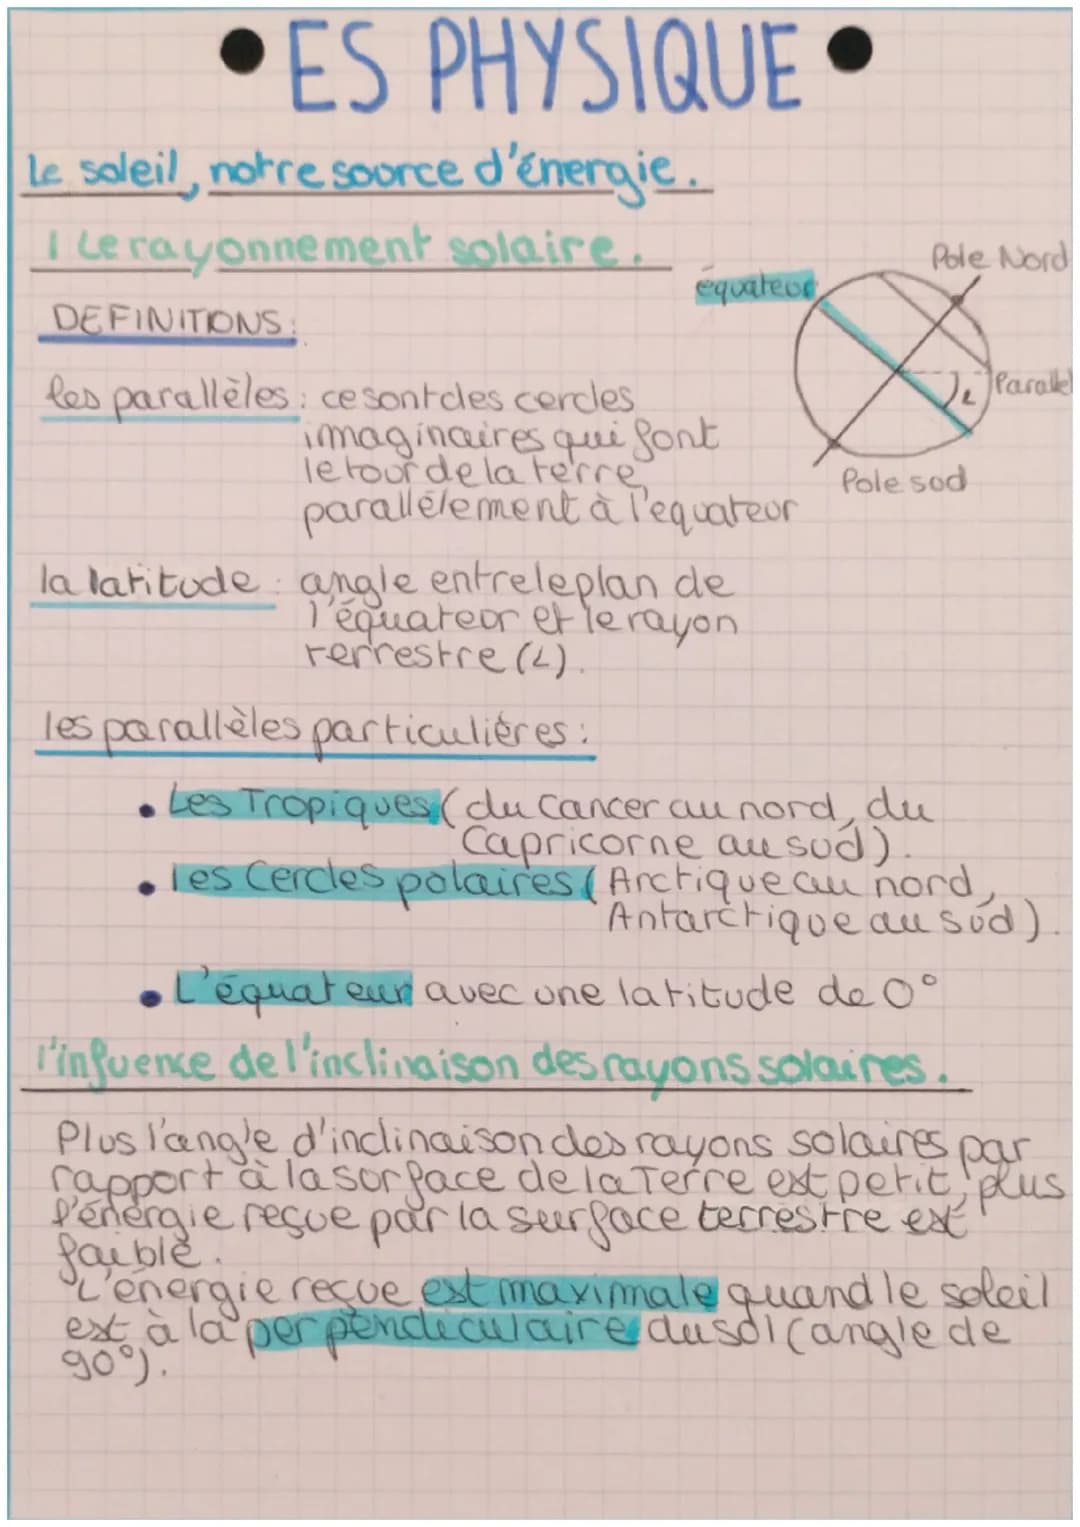 ES PHYSIQUE
Le soleil, notre source d'énergie.
I Le rayonnement solaire.
Pole Nord
équateur
DEFINITIONS:
Parallel
L
les parallèles: ce sont des cercles
imaginaires qui font
le tour de la terre
parallélement à l'equateur
Pole sud
la latitude: angle entre le plan de
l'équateur et le rayon
terrestre (L).
les parallèles particulières:
• Les Tropiques (du Cancer au nord, du
Capricorne au sud).
• les Cercles polaires (Arctique au nord,
Antarctique au sud).
• L'équateur avec une latitude de 0°
l'infuence de l'inclinaison des rayons solaires.
Plus l'angle d'inclinaison des rayons solaires par
rapport à la surface de la Terre est petit, plus
l'énergie reçue par la surface terrestre est
faible.
L'énergie reçue est maximale quand le soleil
est à la perpendiculaire du sol (angle de
90°).